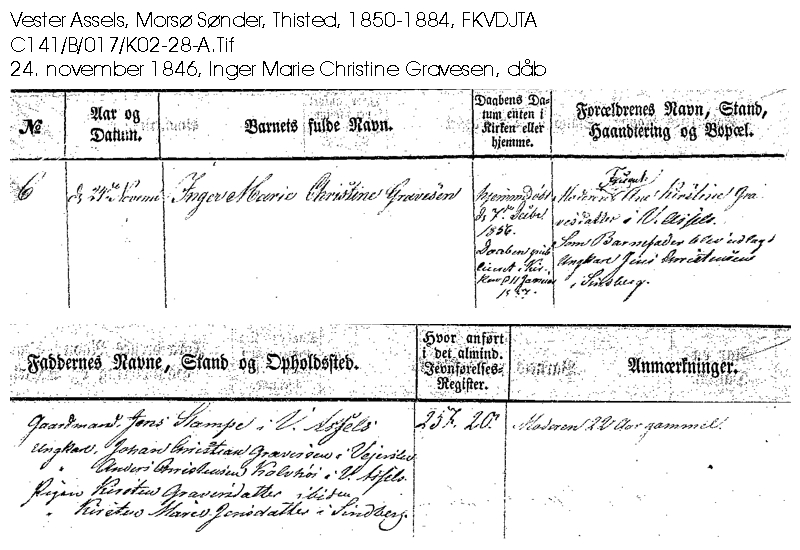 Vester Assels, Morsø Sønder, Thisted, 1850-1884, FKVDJTA
C141/B/017/K02-28-A.Tif
24. november 1846, Inger Marie Christine Gravesen, dåb
No
Aar og
Datum.
Barnets fulde Navn.
Daabens Da-
tum enten i
Kirken eller
hjemme.
Forældrenes Navn, Stand,
Haandtering og Bopæl.
6
d. 24de Novem
Inger Marie Christine Gravesen
hjemmedøbt
d. 7de Decbr
1856.
Daaben pub
liceret i Kir-
ken d 11 Januar
1857.
Moderen Ane Kirstine Gra
vesdatter i V. Assels.
Som Barnefader blev udlagt
Ungkarl Jens Christensen
i Sindberg.
Faddernes Navne, Stand og Opholdssted.
Hvor anført
i det almind.
Jevnførelses-
Register.
Anmærkninger.
Gaardmand. Jens Stampe i V. Assels
Ungkarl. Johan Christian Gravesen i
" Anders Christensen i V. Assels.
Pigen Kirsten Gravesdatter ibiden
" Kirsten Marie Jensdatter i Sindberg.
257. 20.
Moderen 22 Aar gammel.